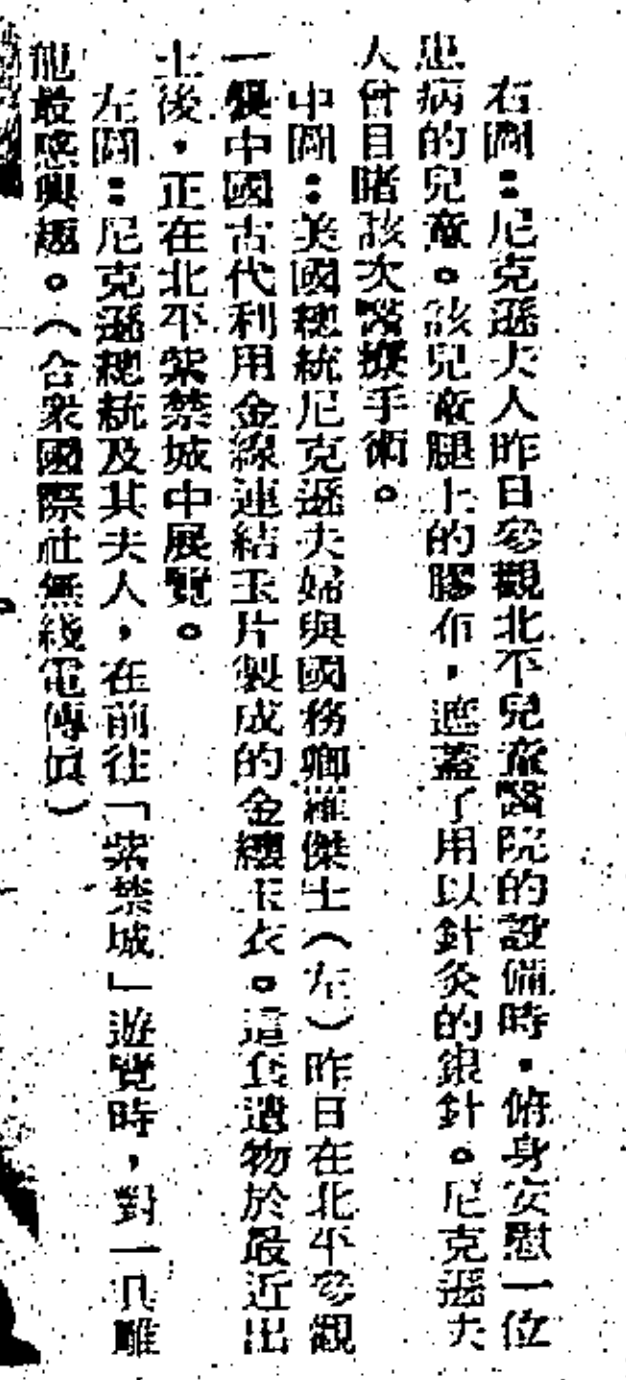 右圖：尼克遜夫人昨日參觀北平兒童醫院的設備時，俯身安慰一位
患病的兒童。該兒童腿上的膠布，遮蓋了用以針灸的銀針。尼克遜夫
人曾目睹該次醫療手術。
中圖：美國總統尼克遜夫婦與國務卿羅傑士（左）昨日在北平參觀
一襲中國古代利用金線連結玉片製成的金縷玉衣。這套遺物於最近出
土後，正在北平紫禁城中展覽。
左圖：尼克遜總統及其夫人，在前往「紫禁城」遊覽時，對一具雕
龍最感興趣。（合衆國際社無綫電傳眞）